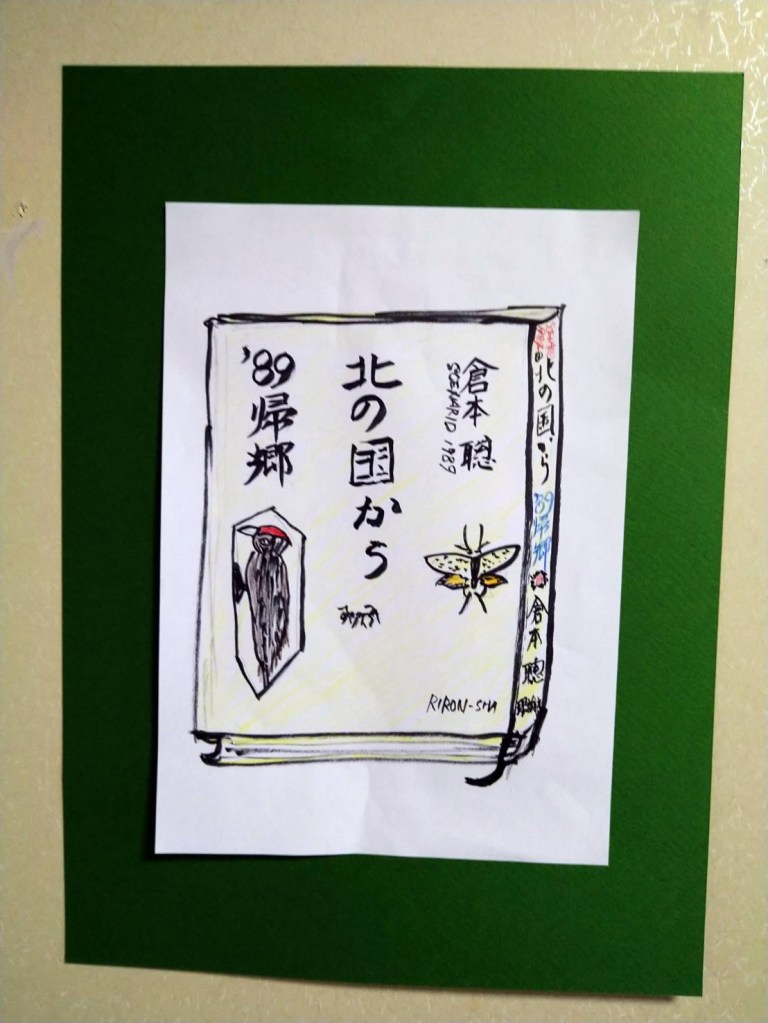 倉本 聰
SCENARIO 1989
北の国から
'89帰郷
RIRON-SHA
北の国から
'89帰郷
倉本 聰